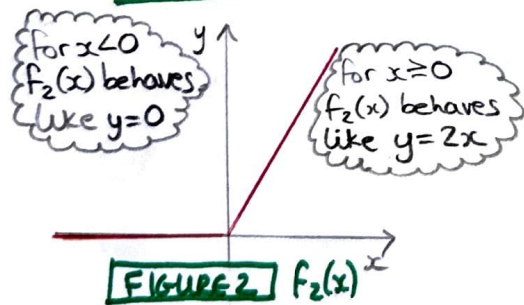 for x<0
f₂(x) behaves
like y=0
y
for x≥0
f₂(x) behaves
like y=2x
x
FIGURE 2 f₂(x)